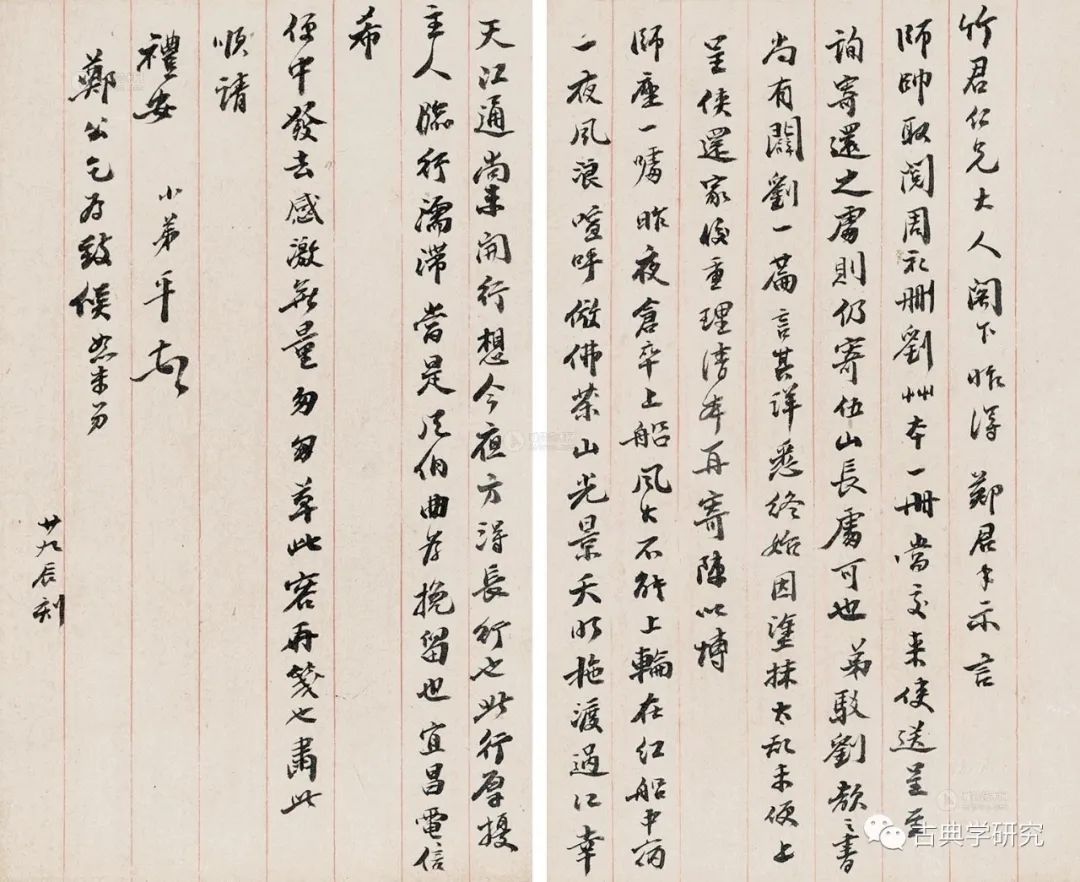 竹君仁兄大人閣下昨得 鄭君手示言
師帥取閱周礼刪劉艸本一冊當交来使送呈至
詢寄還之處則仍寄伍山長處可也 弟駁劉頌之書
尚有闢劉一篇言其詳悉終始因塗抹太亂未便上
呈俟還家後重理清本再寄陳以博
師座一噱昨夜倉卒上船風大不能上輪在红船中病
一夜風浪喧呼儆佛茶山光景天明拖渡過江幸
天江通尚未開行想今夜方得長行也此行厚擾
主人臨行濡滯當是风伯曲为挽留也宜昌電信
希
便中發去感激無量匆匆草此容再箋也肅此
順請
禮安 小弟平
鄭公乞为致候恕未另
廿九辰刻
古典学研究